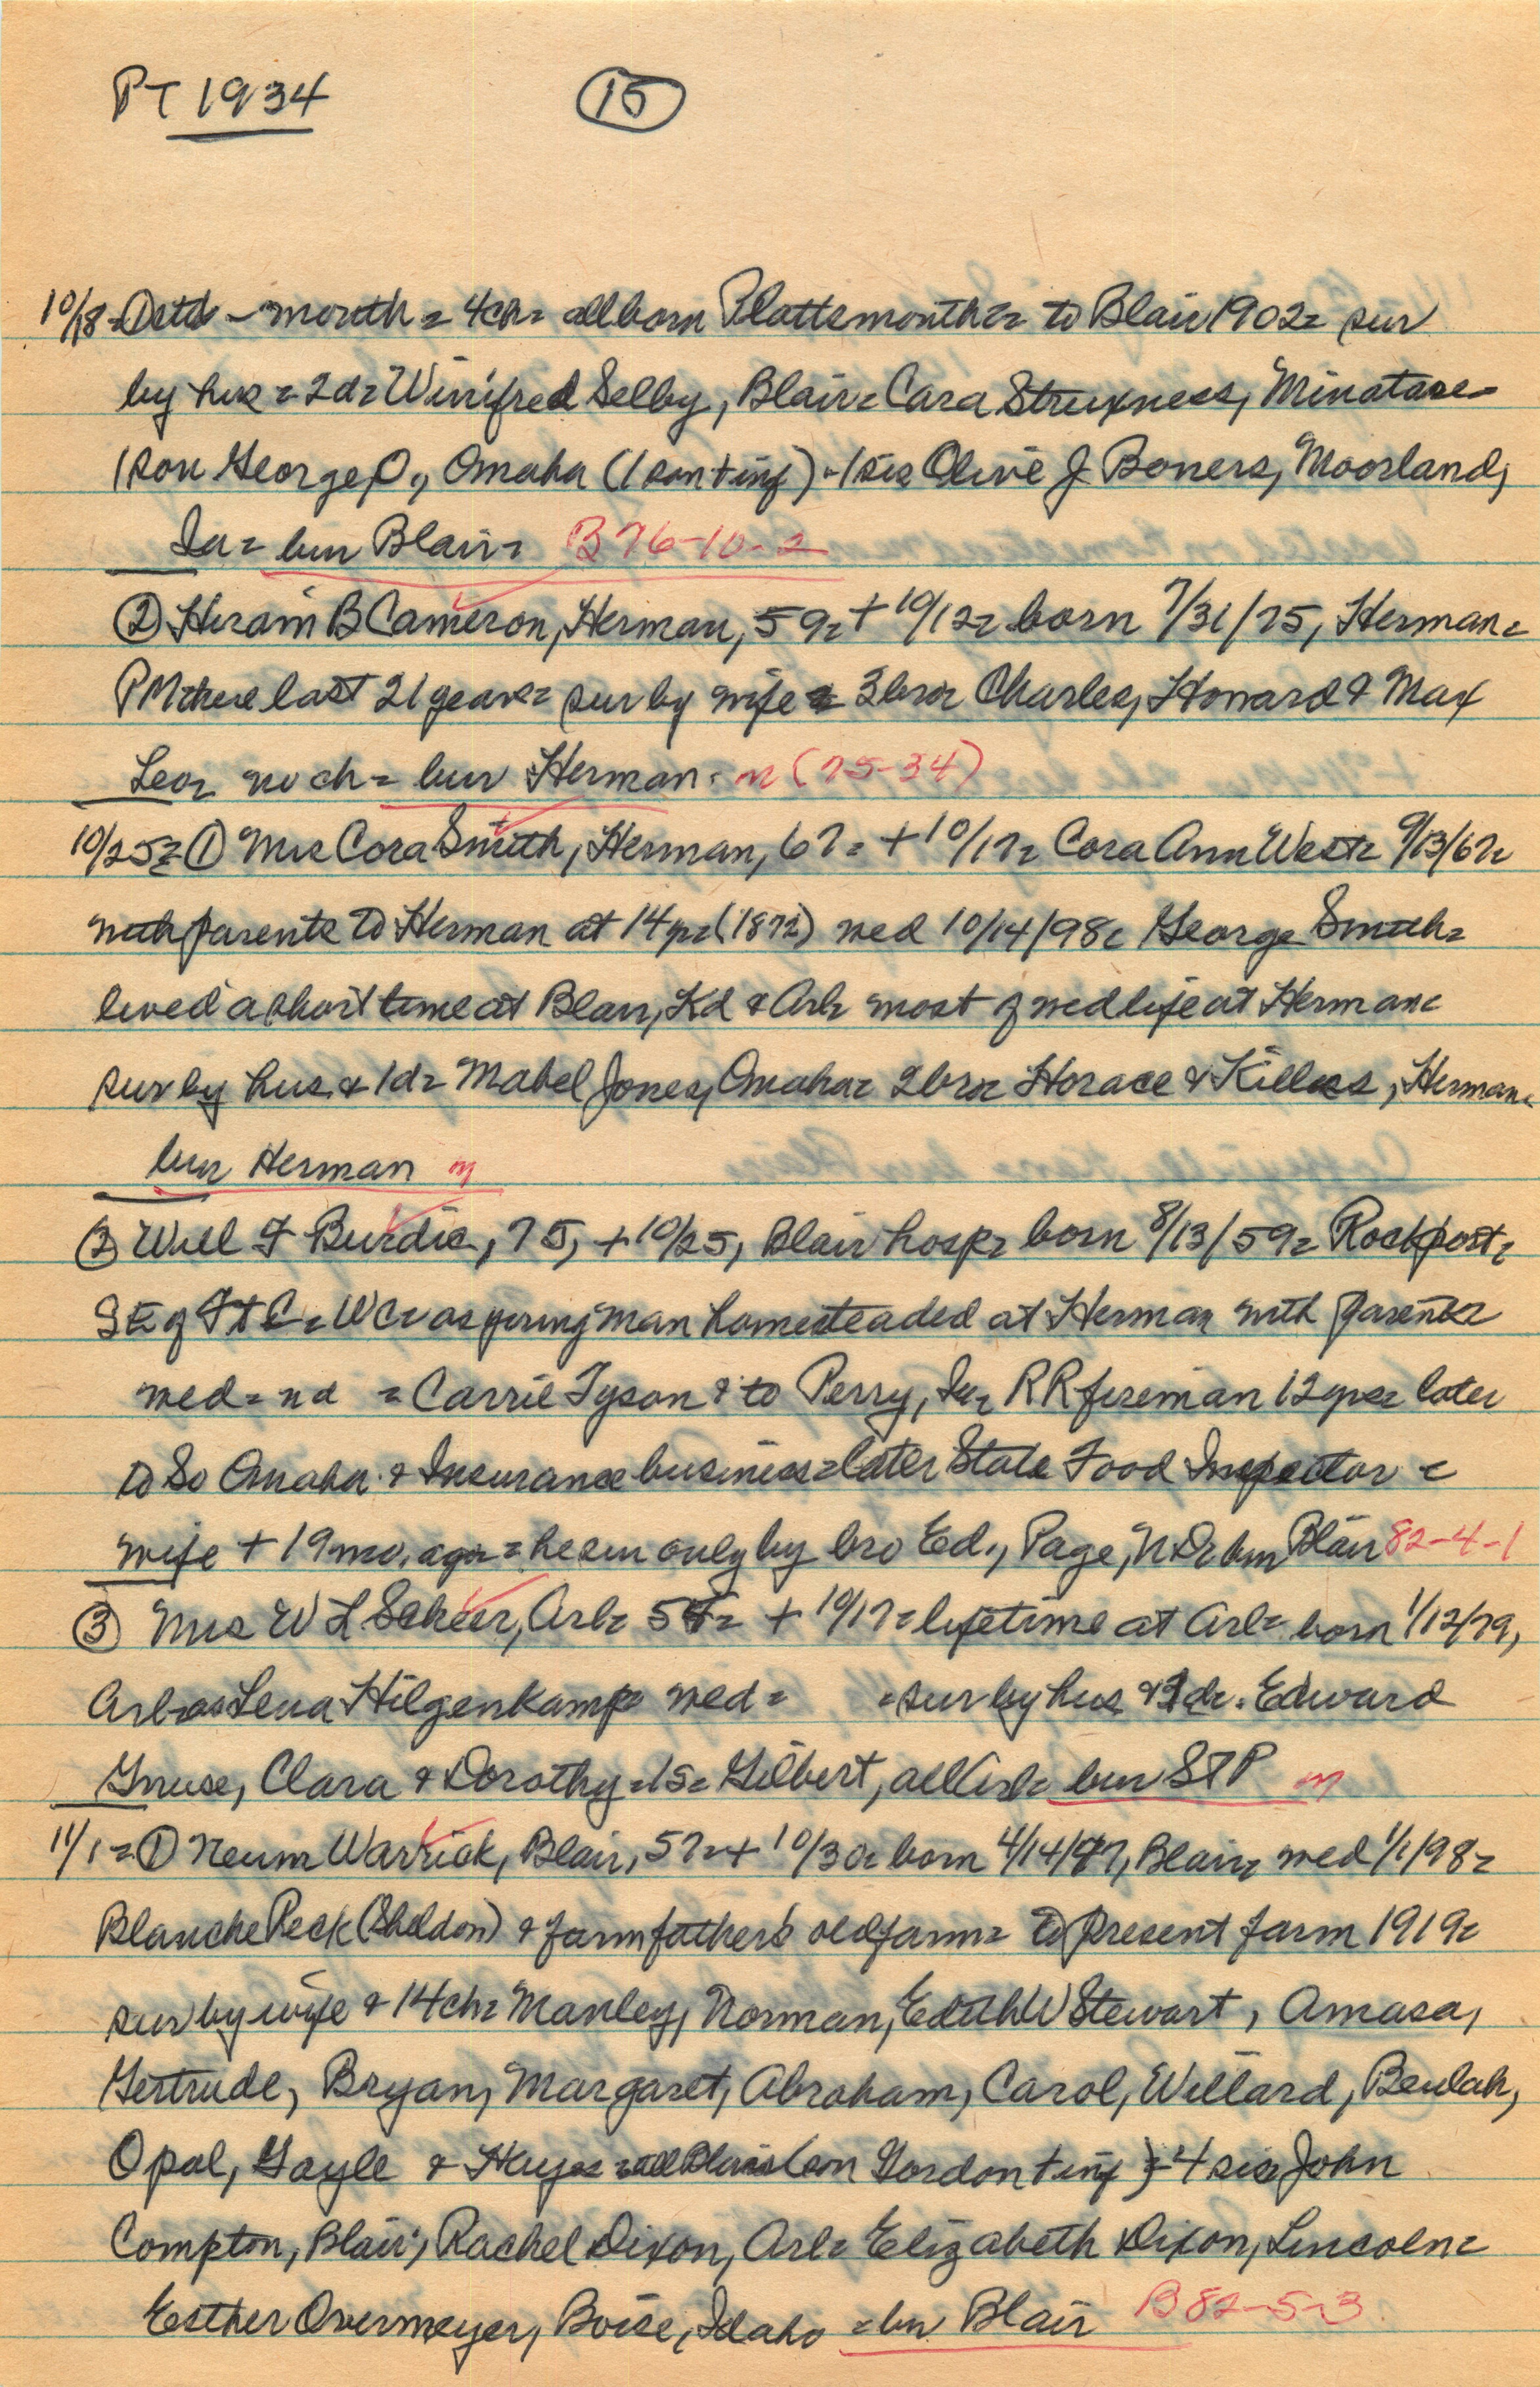 PT 1934 (15)
10/18 = Octd - mouth = 4ch = all born Plattsmouth = to Blair 1902 = sur
by hus = 2d = Winifred Selby, Blair = Cara Struxness, Minatare -
1 son George O., Omaha (1 son + inf) - 1 sis Olive J Boners, Moorland,
Ia = bur Blair = B 76-10-2
(2) Hiram B Cameron, Herman, 59 = + 10/12 = born 7/31/75, Herman =
PM there last 21 years = sur by wife = 3 bro = Charles, Howard & Max
Leo = no ch = bur Herman = m (75-34)
10/25 = (1) Mrs Cora Smith, Herman, 67 = + 10/17 = Cora Ann West = 9/13/67 =
with parents to Herman at 14 yr = (1872) wed 10/14/98 = George Smith =
lived a short time at Blair, Kd & Arl = most of wed life at Herman =
sur by hus & 1d = Mabel Jones, Omaha = 2 bro = Horace & Killess, Herman =
bur Herman m
(2) Will F Burdic, 75, + 10/25, Blair hosp = born 8/13/59 = Rockport =
SE of Ft C = WC = as young man homesteaded at Herman with parents =
wed = nd = Carrie Tyson & to Perry, Ia = RR fireman 12 yrs = later
to So Omaha & Insurance business = later State Food Inspector =
wife + 19 mo. ago = he sur only by bro Ed., Page, ND = bur Blair 82-4-1
(3) Mrs W L Scheer, Arl = 55 = + 10/17 = lifetime at Arl = born 1/12/79,
Arl = as Lena Hilgenkamp = wed = = sur by hus & 3d = Edward
Gnuse, Clara & Dorothy = 1s = Gilbert, all Arl = bur STP m
11/1 = (1) Neum Warrick, Blair, 57 = + 10/30 = born 4/14/77, Blair = wed 1/1/98 =
Blanche Peck (Sheldon) & farm father's old farm = to present farm 1919 =
sur by wife & 14 ch = Manley, Norman, Edith W Stewart, Amasa,
Gertrude, Bryan, Margaret, Abraham, Carol, Willard, Beulah,
Opal, Gayle & Hayes = all Blair (son Gordon + inf) = 4 sis = John
Compton, Blair, Rachel Dixon, Arl = Elizabeth Dixon, Lincoln =
Esther Overmeyer, Boise, Idaho = bur Blair B 82-5-3